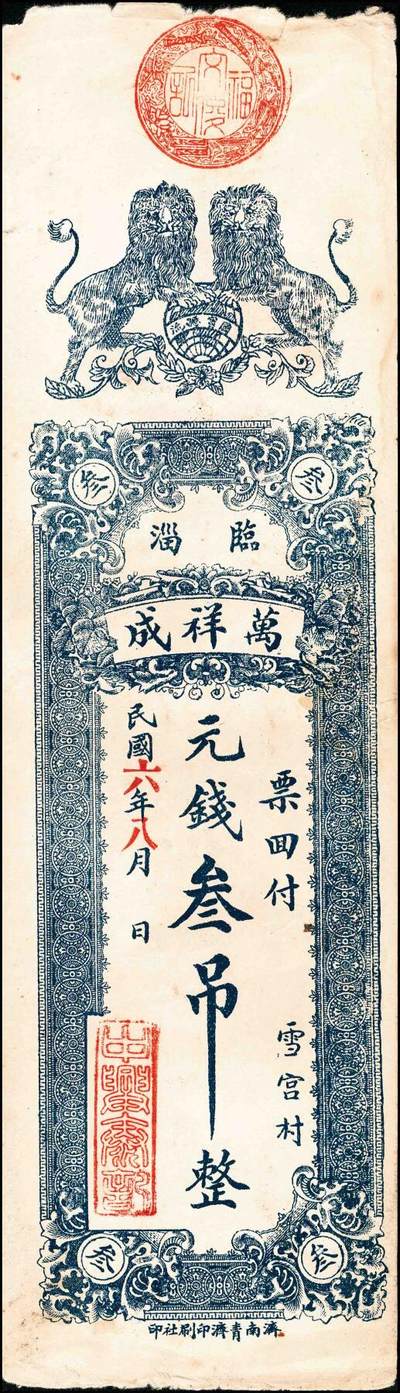 臨淄
萬祥成
票回付
雪宮村
元錢叁吊整
民國六年八月 日
叄
叁
叁
叄
濟南青濟印刷社印